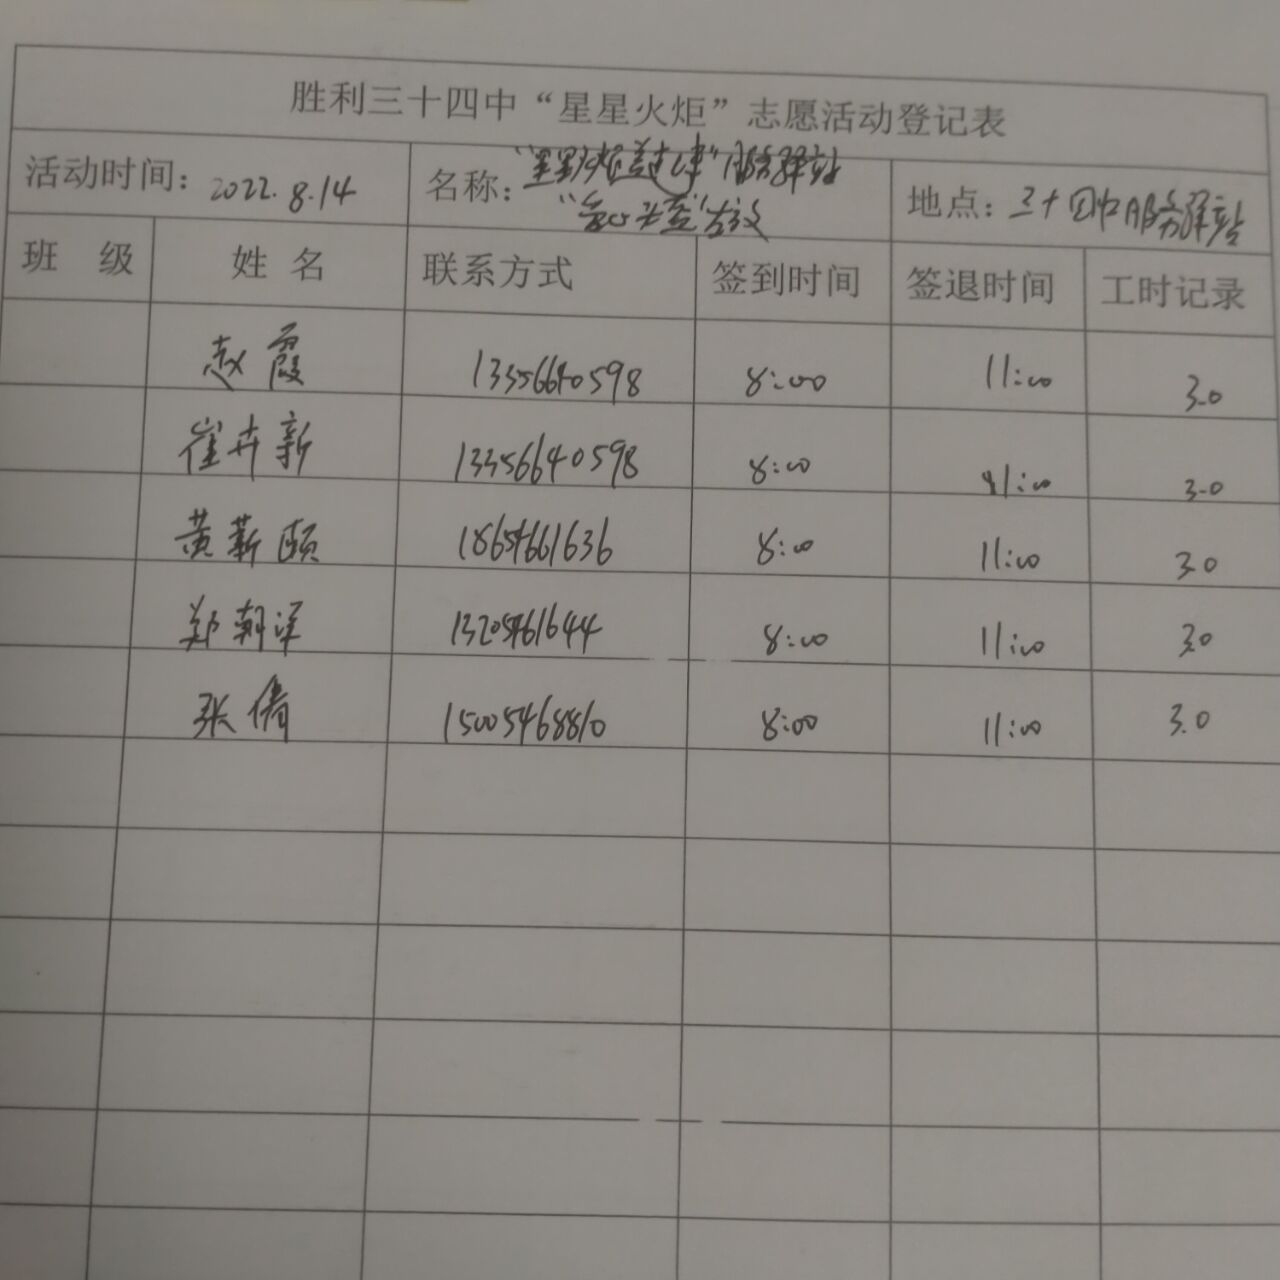 胜利三十四中“星星火炬”志愿活动登记表
活动时间：2022.8.14 名称：“星星火炬 “服务驿站 地点：三十四中服务驿站
“爱心 ”
班 级 姓 名 联系方式 签到时间 签退时间 工时记录
赵霞 13356640598 8:00 11:00 3.0
崔卉新 13356640598 8:00 11:00 3.0
黄薪颐 18654661636 8:00 11:00 3.0
郑朝泽 13205461644 8:00 11:00 3.0
张倩 15005468810 8:00 11:00 3.0